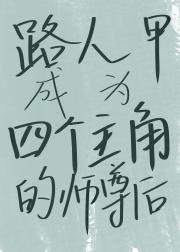 路人甲
成为
四个主角
的师尊后